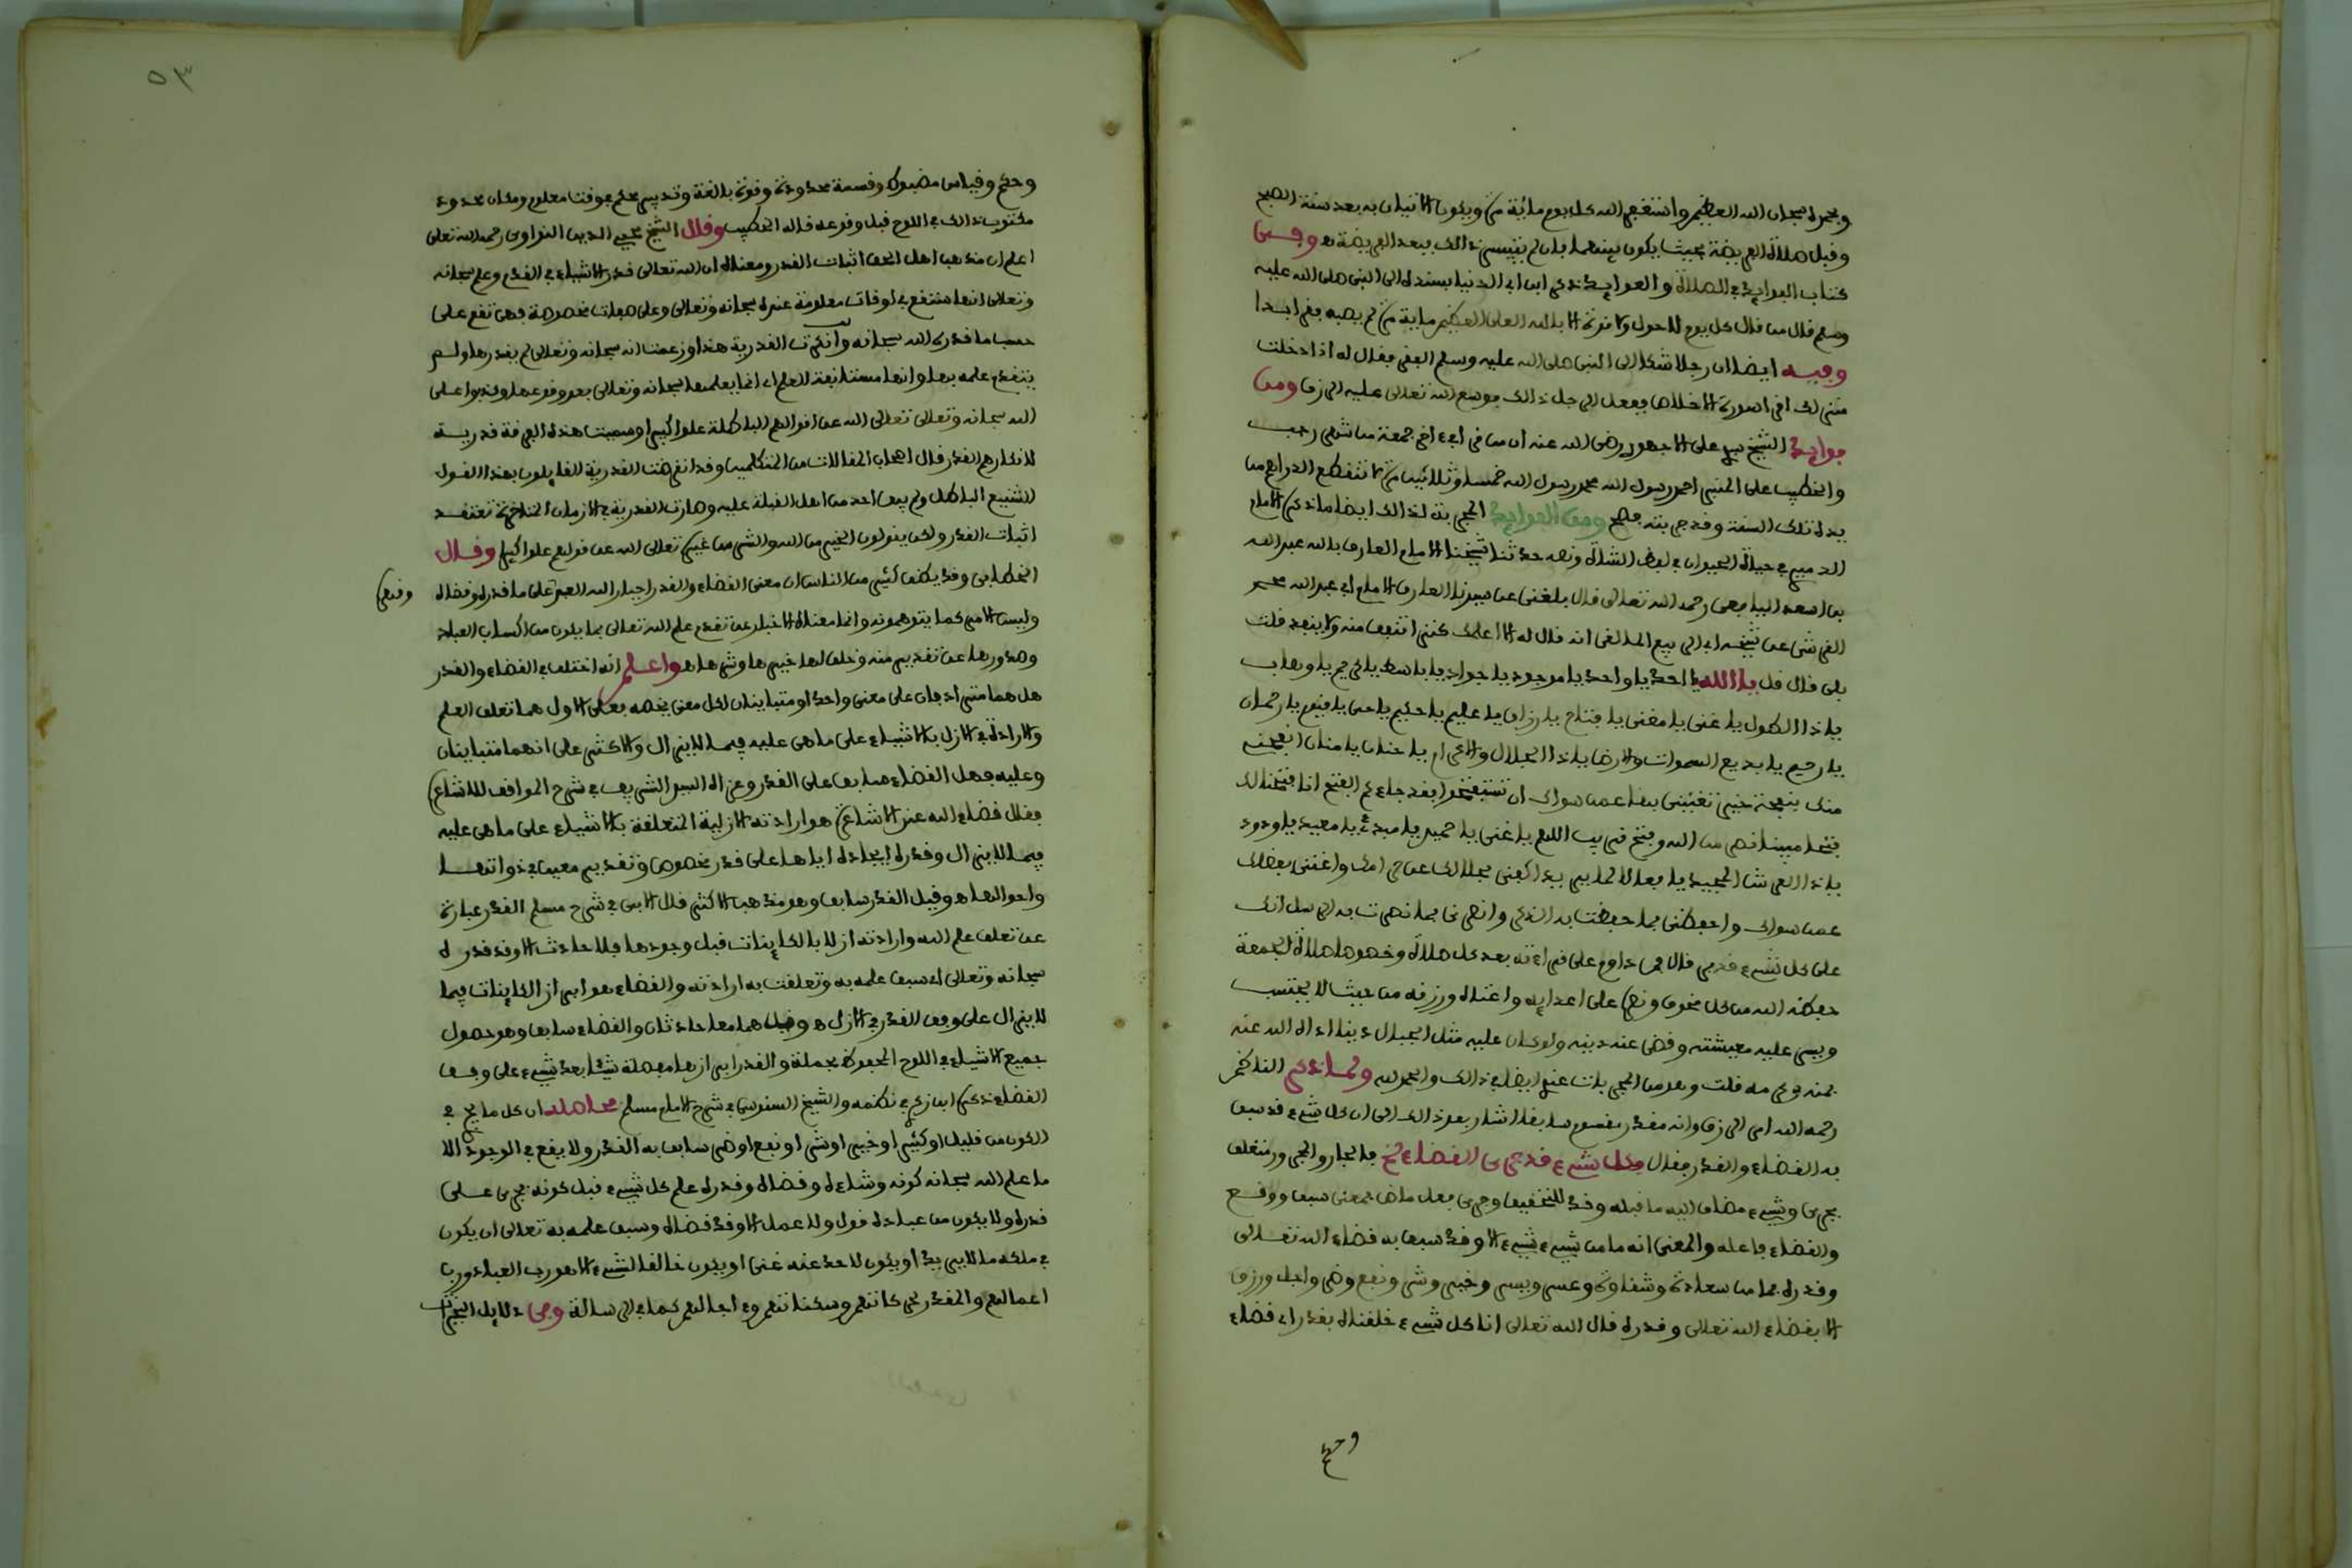 وبحمده سبحان الله العظيم واستغفر الله كل يوم مائة مرة ويكون الاتيان به بعد سنة الصبح
وقبل صلاة الفريضة بحيث يكون بينهما بان لم يتيسر ذالك فبعد الفريضة هـ وفى
كتاب الفوايد في الصلاة والعوايد ذكر ابن ابي الدنيا بسنده الى النبي صلى الله عليه
وسلم قال من قال كل يوم لا حول ولا قوة الا بالله العلي العظيم ماية مرة لم يصبه فقر ابدا
وفيه ايضا ان رجلا شكا الى النبي صلى الله عليه وسلم الفقر فقال له اذا دخلت
منزلك اقر سورة الاخلاص ففعل الرجل ذالك فوسع الله تعالى عليه الرزق ومن
فوايد الشيخ سيدي علي الاجهوري رضي الله عنه ان من قرا في اخر جمعة من شهر رجب
والخطيب على المنبر احمد رسول الله محمد رسول الله خمسا وثلاثين مرة لا تنقطع الدراهم من
يده تلك السنة وقد جربته فصح ومن الفوايد المجربة لذالك ايضا ما ذكره الامام
الدميري في حياة الحيوان في لفظ الشاة ونصه حدثنا شيخنا الامام العارف بالله عبد الله
بن اسعد اليافعي رحمه الله تعالى قال بلغني عن سيدنا العارف الامام ابي عبد الله محمد
القرشي عن شيخه ابي الربيع المالقي انه قال له الا اعلمك كنزا تنفق منه ولا ينفد قلت
بلى قال قل يا الله يا احد يا واحد يا موجود يا جواد يا باسط يا كريم يا وهاب
يا ذا الطول يا غني يا مغني يا فتاح يا رزاق يا عليم يا حكيم يا حي يا قيوم يا رحمان
يا رحيم يا بديع السموات والارض يا ذا الجلال والاكرام يا حنان يا منان انفحني
منك بنفحة خير تغنيني بها عمن سواك ان تستفتحوا فقد جاءكم الفتح انا فتحنا لك
فتحا مبينا نصر من الله وفتح قريب اللهم يا غني يا حميد يا مبدئ يا معيد يا ودود
يا ذا العرش المجيد يا فعالا لما يريد اكفني بحلالك عن حرامك واغنني بفضلك
عمن سواك واحفظني بما حفظت به الذكر وانصرني بما نصرت به الرسل انك
على كل شيء قدير قال فمن داوم على قراءته بعد كل صلاة وخصوصا صلاة الجمعة
حفظه الله من كل مخوف ونصره على اعدايه واغناه ورزقه من حيث لا يحتسب
ويسر عليه معيشته وقضى عنه دينه ولو كان عليه مثل الجبال دينا اداه الله عنه
بمنه وكرمه قلت وهو من المجربات عندي ايضا في ذالك والحمد لله ولما ذكر الناظم
رحمه الله امر الرزق وانه مقدر بقسم سابق اشار بعد ذالك الى ان كل شيء قد سبق
به القضاء والقدر فقال فكل شيء قد جرى القضاء فالجار والمجرور متعلق
بجرى وشيء مضاف اليه ما قبله وقد للتحقيق وجرى فعل ماض بمعنى سبق ووقع
والقضاء فاعله والمعنى انه ما من شيء شيء الا وقد سبق به قضاء الله تعالى
وقدره بما من سعادة وشقاوة وعسر ويسر وخير وشر ونفع وضر واجل ورزق
الا بقضاء الله تعالى وقدره قال الله تعالى انا كل شيء خلقناه بقدر اي قضاء
وحكم
٥٣
وحكم وقياس مضبوط وقسمة محدودة وقوة بالغة وتدبير محكم في وقت معلوم ومكان محدود
مكتوب ذالك في اللوح قبل وقوعه قاله الخطيب وقال الشيخ محيي الدين النواوي رحمه الله تعالى
اعلم ان مذهب اهل الحق اثبات القدر ومعناه ان الله تعالى قدر الاشياء في القدم وعلم سبحانه
وتعالى انها ستقع في اوقات معلومة عنده سبحانه وتعالى وعلى صفات مخصوصة فهي تقع على
حسب ما قدره الله سبحانه وانكرت القدرية هذا وزعمت انه سبحانه وتعالى لم يقدرها ولم
يتقدم علمه بها وانها مستانفة العلم اي انما يعلمها سبحانه وتعالى بعد وقوعها وكذبوا على
الله سبحانه وتعالى تعالى الله عن اقوالهم الباطلة علوا كبيرا وسميت هذه الفرقة قدرية
لانكارهم القدر قال اصحاب المقالات من المتكلمين وقد انقرضت القدرية القايلون بهذا القول
الشنيع الباطل ولم يبق احد من اهل القبلة عليه وصارت القدرية في الازمان المتاخرة تعتقد
اثبات القدر ولكن يقولون الخير من الله والشر من غيره تعالى الله عن قولهم علوا كبيرا وقال
الخطابي وقد يظن كثير من الناس ان معنى القضاء والقدر اجبار الله العبد على ما قدره وقضاه
وقهره
وليس الامر كما يتوهمونه وانما معناه الاخبار عن تقدم علم الله تعالى بما يكون من اكساب العباد
وصدورها عن تقدير منه وخلق لها خيرها وشرها هـ واعلم انه اختلف في القضاء والقدر
هل هما مترادفان على معنى واحد او متباينان لكل معنى يخصه فعلى الاول هما تعلق العلم
والارادة في الازل بالاشياء على ما هي عليه فيما لا يزال والاكثر على انهما متباينان
وعليه فهل القضاء سابق على القدر وعزاه السيد الشريف في شرح المواقف للاشاعرة
فقال قضاء الله عند الاشاعرة هو ارادته الازلية المتعلقة بالاشياء على ما هي عليه
فيما لا يزال وقدره ايجاده اياها على قدر مخصوص وتقدير معين في ذواتها
واحوالها هـ وقيل القدر سابق وهو مذهب الاكثر قال الابي في شرح مسلم القدر عبارة
عن تعلق علم الله وارادته ازلا بالكاينات قبل وجودها فلا حادث الا وقد قدره
سبحانه وتعالى اي سبق علمه به وتعلقت به ارادته والقضاء هو ابراز الكاينات فيما
لا يزال على وفق القدر في الازل هـ وقيل هما معا حادثان والقضاء سابق وهو حصول
جميع الاشياء في اللوح المحفوظ مجملة والقدر ابرازها مفصلة شيئا بعد شيء على وفق
القضاء ذكره ابن زكري في نظمه والشيخ السنوسي في شرح الامام مسلم محصله ان كل ما يجري في
الكون من قليل او كثير او خير او شر او نفع او ضر سابق به القدر ولا يقع في الوجود الا
ما علم الله سبحانه كونه وشاءه وقضاه وقدره علم كل شيء قبل كونه فجرى على
قدره ولا يكون من عباده قول ولا عمل الا وقد قضاه وسبق علمه به تعالى ان يكون
في ملكه ما لا يريد او يكون لاحد عنه غنى او يكون خالقا لشيء الا هو رب العباد ورب
اعمالهم والمقدر لحركاتهم وسكناتهم وءاجالهم كما في الرسالة وفى دلايل الخيرات